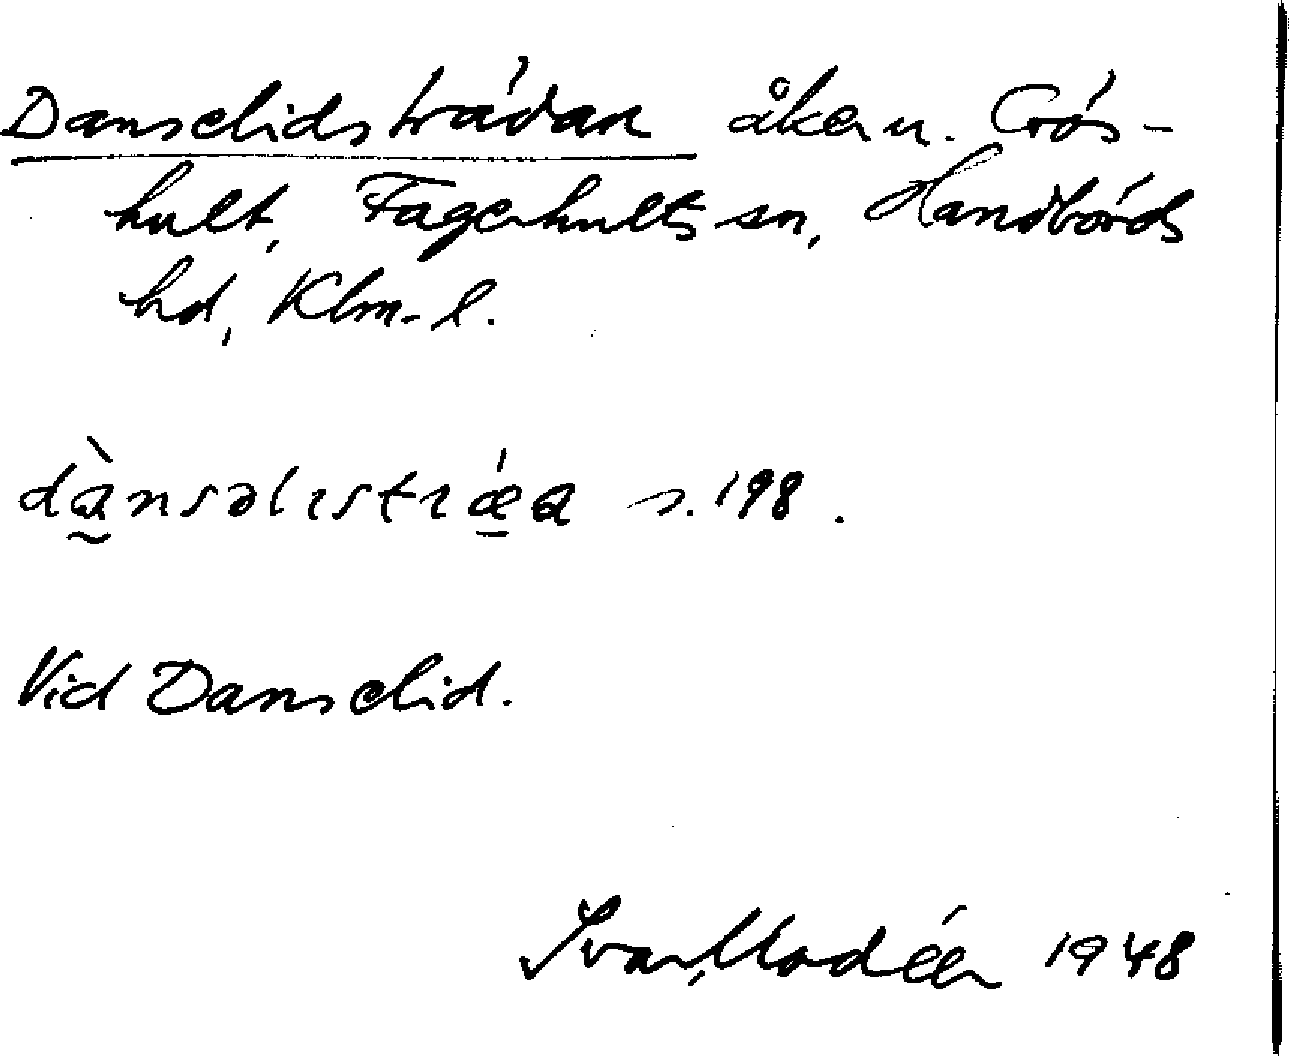 Danselidsträdan åker u. Grös-
hult, Fagerhults sn, Handbörds
hd, Klm. l.
dànsəlıstrǽa s. 198.
Vid Danselid.
Ivar Modéer 1948